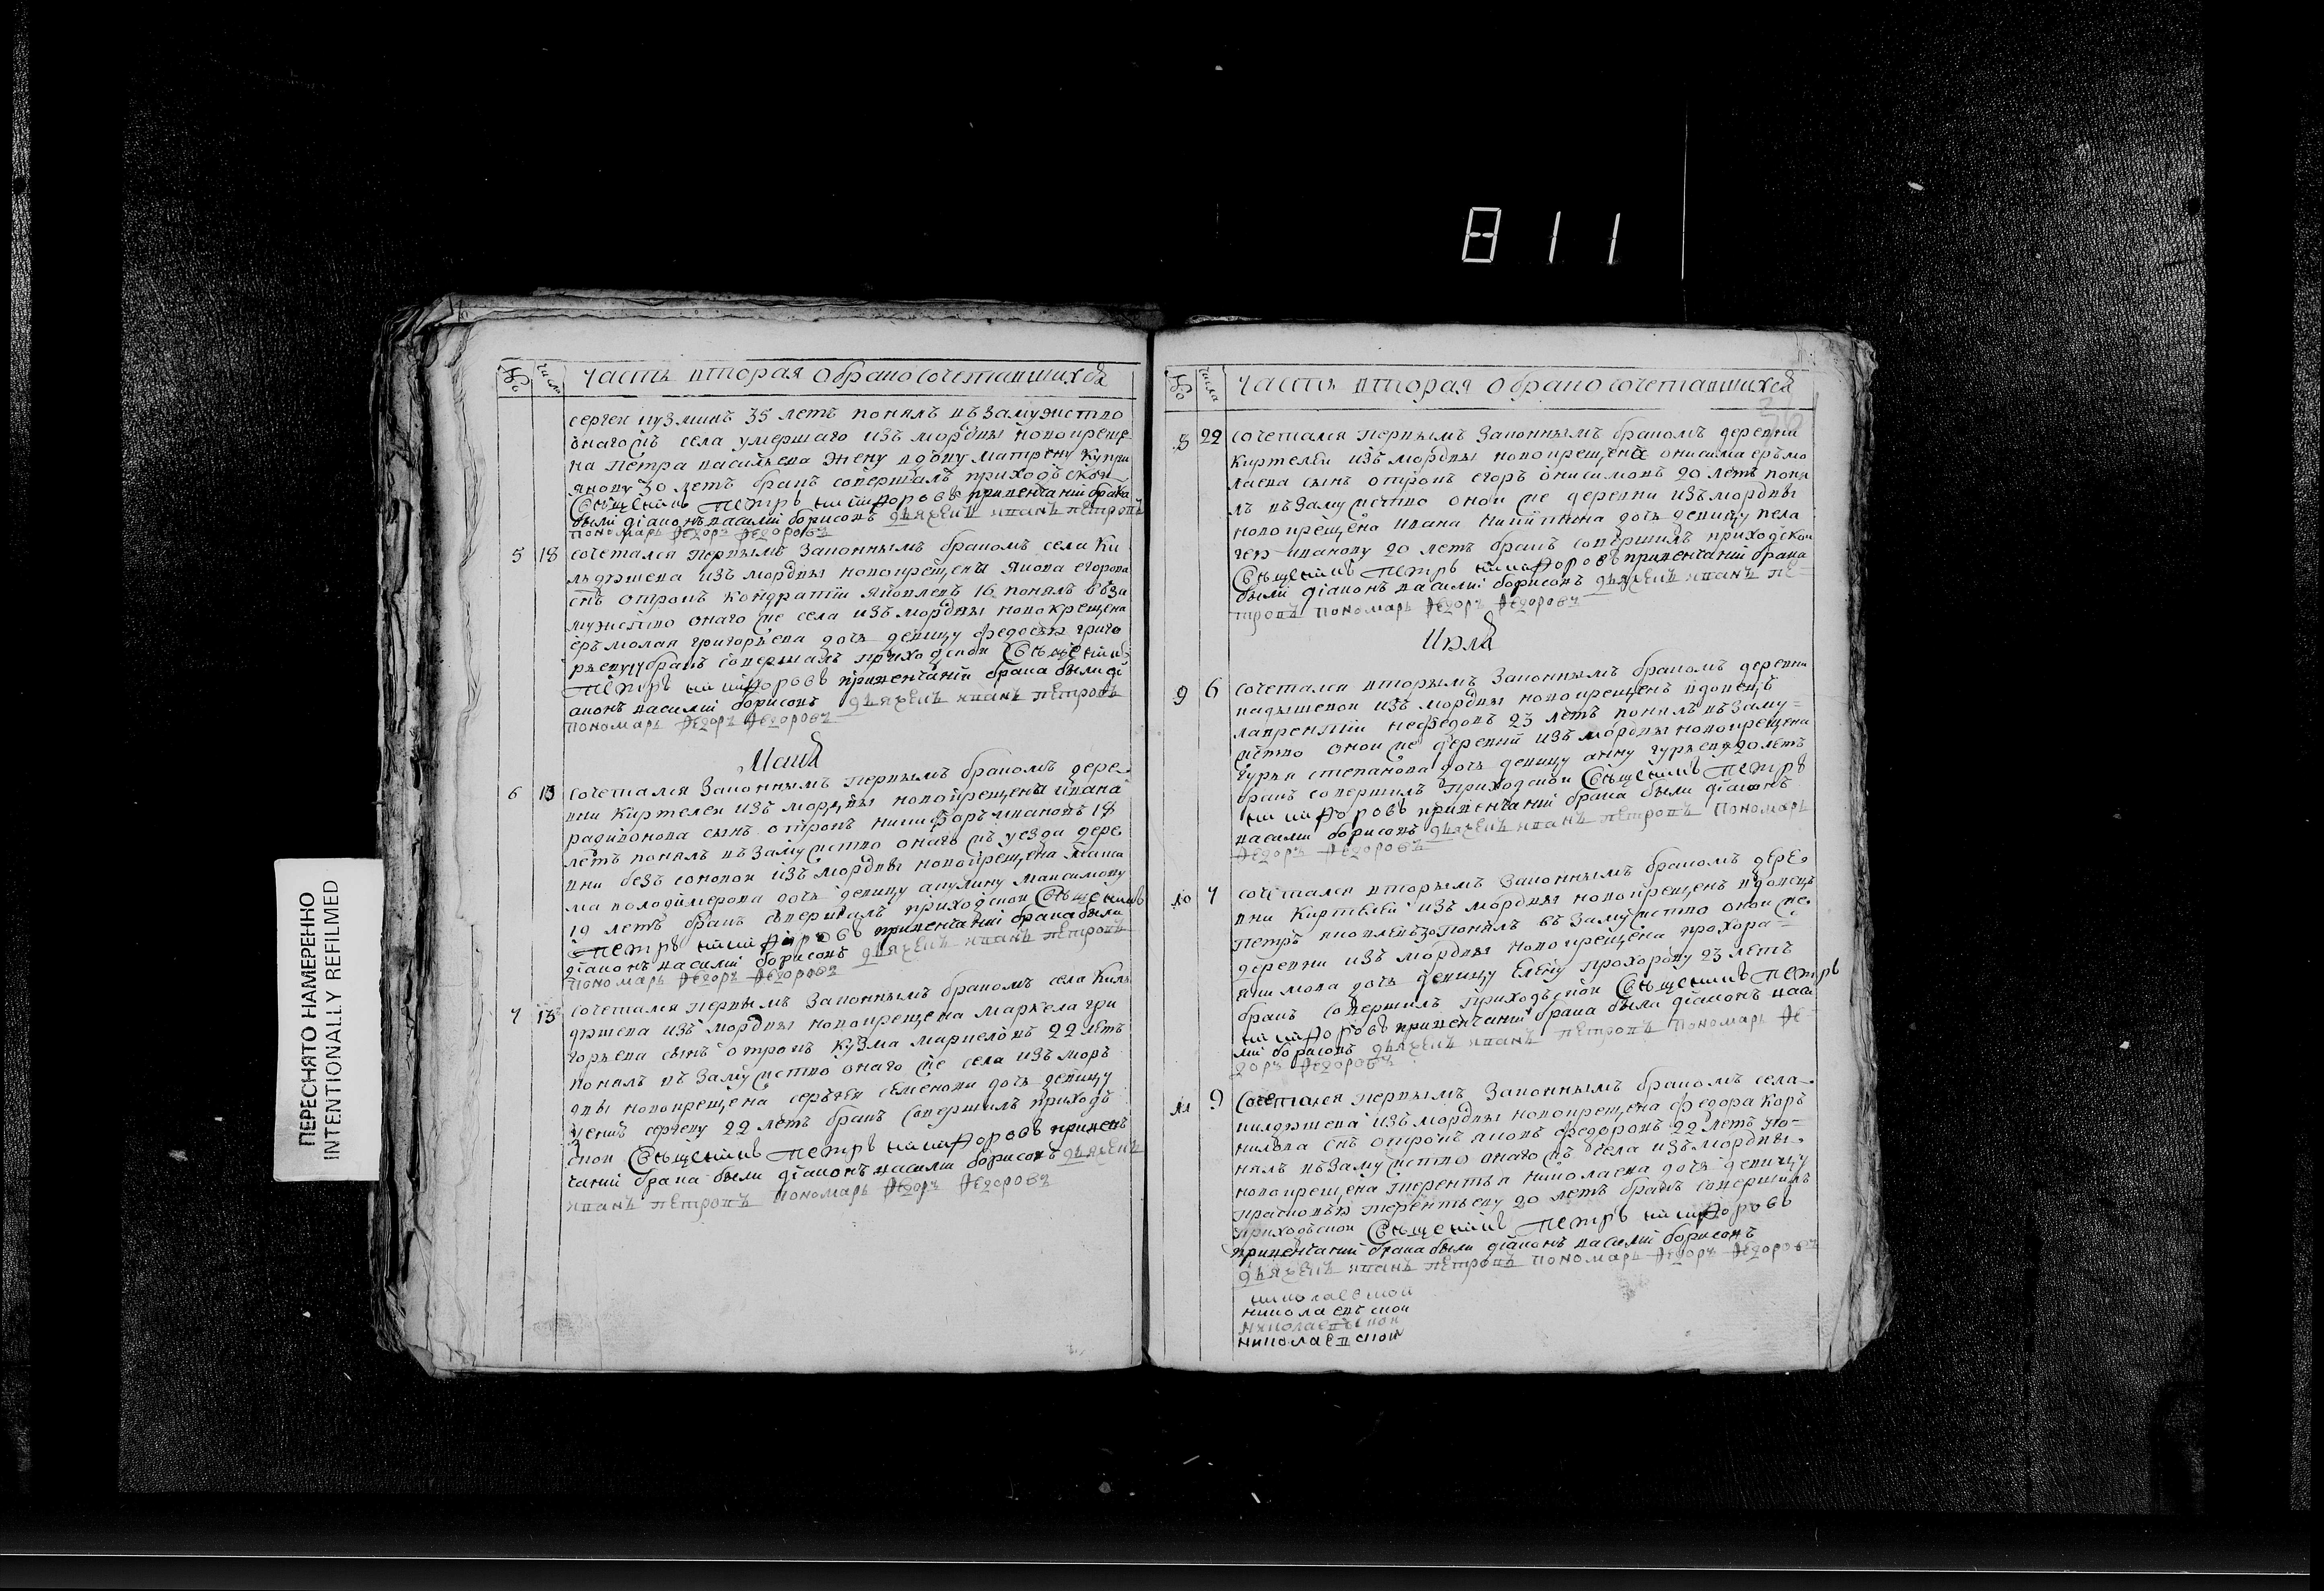 811
ПЕРЕСНЯТО НАМЕРЕННО
INTENTIONALLY REFILMED
№ числа Часть вторая о браносочетавшихся
сергеи кузминъ 35 летъ понялъ въ замужство
онаго села умершаго изъ мордвы новокреще
на петра васильева жену вдову матрену купри
янову 30 летъ бракъ совершалъ приходской
Священникъ Петръ Никифоровъ при венчании брака
были диаконъ василий борисовъ дьячекъ иванъ петровъ
пономарь Федоръ Федоровъ
5 18 сочетался первымъ законнымъ бракомъ села ки
льдюшева изъ мордвы новокрещена якова егорова
снъ отрокъ кондратий яковлевъ 16 понялъ в за
мужство онаго же села изъ мордвы новокрещена
ермолая григорьева дочь девицу федосью
бракъ совершалъ приходской Священникъ
Петръ Никифоровъ при венчании брака были ди
аконъ василий борисовъ дьячекъ иванъ петровъ
пономарь Федоръ Федоровъ
Маиа
6 13 сочетался законнымъ первымъ бракомъ дере
вни Киртелеи изъ мордвы новокрещена ивана
радивонова сынъ отрокъ никифоръ ивановъ 18
летъ понялъ въ замужство онаго жъ уезда дере
вни безъ соновои изъ мордвы новокрещена макси
ма володимерова дочь девицу акулину максимову
19 летъ бракъ совершалъ приходской Священникъ
Петръ Никифоровъ при венчании брака были
диаконъ василий борисовъ дьячекъ иванъ петровъ
пономарь Федоръ Федоровъ
7 13 сочетался первымъ законнымъ бракомъ села киль
дюшева изъ мордвы новокрещена маркела гри
горьева сынъ отрокъ кузма маркеловъ 22 летъ
понялъ въ замужство онаго же села изъ мор
двы новокрещена сергея семенова дочь девицу
сергеву 22 летъ бракъ совершилъ приходъ
скои Священникъ Петръ Никифоровъ при вен
чании брака были диаконъ василий борисовъ дьячекъ
иванъ петровъ пономарь Федоръ Федоровъ
№ числа Часть вторая о браносочетавшихся
22 сочетался первымъ законнымъ бракомъ деревни
киртелеи изъ мордвы новокрещена онисима ермо
лаева сынъ отрокъ егоръ онисимовъ 20 летъ поня
лъ въ замужство онои же деревни изъ мордвы
новокрещена ивана никитина дочь девицу пела
гею иванову 20 летъ бракъ совершилъ приходской
Священникъ Петръ Никифоровъ при венчании брака
были диаконъ василий борисовъ дьячекъ иванъ пе
тровъ пономарь Федоръ Федоровъ
Июля
9 6 сочетался вторымъ законнымъ бракомъ деревни
изъ мордвы новокрещенъ вдовецъ
лаврентий нефедовъ 23 летъ понялъ въ заму
жство онои же деревни изъ мордвы новокрещена
гурья степанова дочь девицу анну гурьеву 20 летъ
бракъ совершилъ приходской Священникъ Петръ
Никифоровъ при венчании брака были диаконъ
василий борисовъ дьячекъ иванъ петровъ пономарь
Федоръ Федоровъ
10 7 сочетался вторымъ законнымъ бракомъ дере
вни Киртелеи изъ мордвы новокрещенъ вдовецъ
петръ яковлевъ понялъ въ замужство онои же
деревни изъ мордвы новокрещена прохора
якимова дочь девицу Елену прохорову 23 летъ
бракъ совершилъ приходской Священникъ Петръ
Никифоровъ при венчании брака были диаконъ васи
лий борисовъ дьячекъ иванъ петровъ пономарь Фе
доръ Федоровъ
11 9 Сочетался первымъ законнымъ бракомъ села
килдюшева изъ мордвы новокрещена федора кор
нильва снъ отрокъ яковъ федоровъ 22 летъ по
нялъ въ замужство онаго жъ села изъ мордвы
новокрещена терентья николаева дочь девицу
прасковью терентьеву 20 летъ бракъ совершилъ
приходской Священникъ Петръ Никифоровъ
при венчании брака были диаконъ василий борисовъ
дьячекъ иванъ петровъ пономарь Федоръ Федоровъ
николаевской
николаевской
николаевской
николаевской